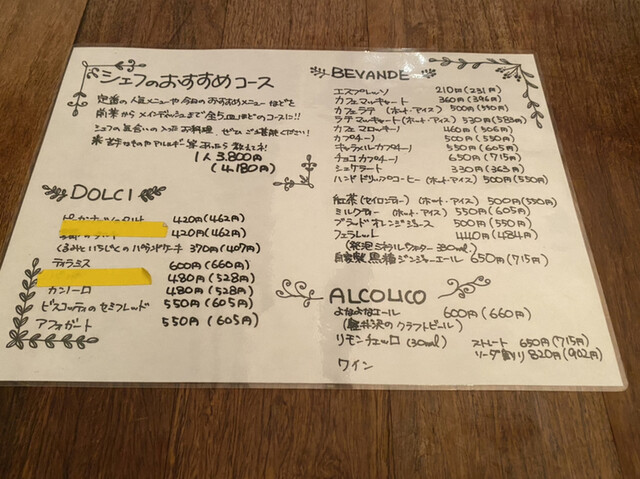 シェフのおすすめコース
定番の人気メニューや今日のおすすめメニューなどを
前菜からメインディッシュまで全5皿ほどのコースに!!
シェフの気合いの入ったお料理、ぜひご堪能ください!
1人 3,800円
(4,180円)
DOLCI
420円(462円)
420円(462円)
くるみといちじくのパウンドケーキ 370円(407円)
ティラミス 600円(660円)
480円(528円)
カンノーロ 480円(528円)
ビスコッティのセミフレッド 550円(605円)
アフォガート 550円(605円)
BEVANDE
エスプレッソ 210円(231円)
カフェマッキャート 360円(396円)
カフェラテ (ホット・アイス) 500円(550円)
ラテマッキャート(ホット・アイス) 530円(583円)
カフェマロッキーノ 460円(506円)
カプチーノ 500円(550円)
キャラメルカプチーノ 550円(605円)
チョコカプチーノ 650円(715円)
シェケラート 330円(363円)
ハンドドリップコーヒー(ホット・アイス) 500円(550円)
紅茶(セイロンティー)(ホット・アイス) 500円(550円)
ミルクティー (ホット・アイス) 550円(605円)
ブラッドオレンジジュース 500円(550円)
フェラレッレ 440円(484円)
(発泡ミネラルウォーター 330ml)
自家製黒糖ジンジャーエール 650円(715円)
ALCOLICO
よなよなエール 600円(660円)
(軽井沢のクラフトビール)
リモンチェッロ (30ml) ストレート 650円(715円)
ソーダ割り 820円(902円)
ワイン